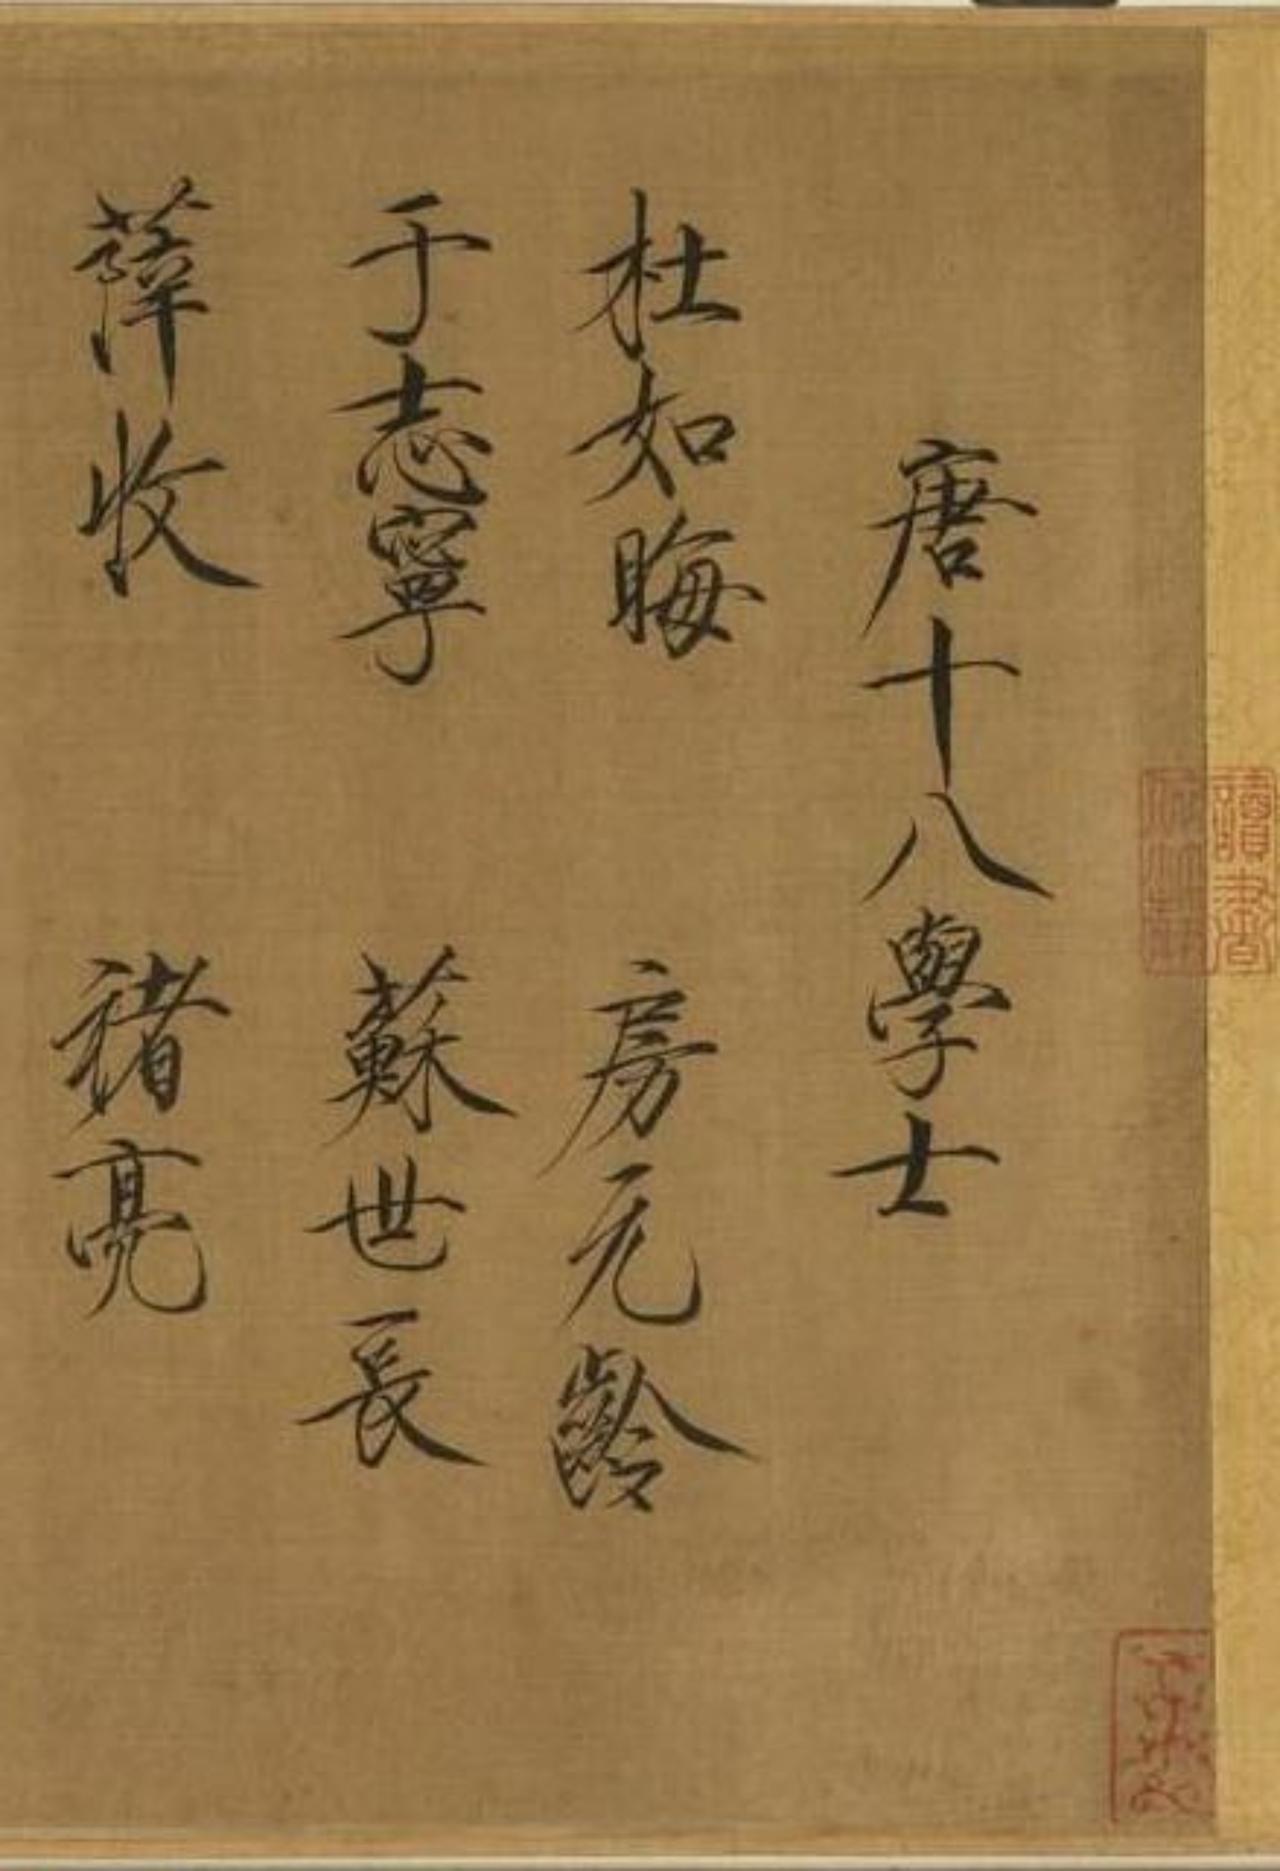 唐十八學士
杜如晦 房元齡
于志寧 蘇世長
薛收 褚亮
讀書